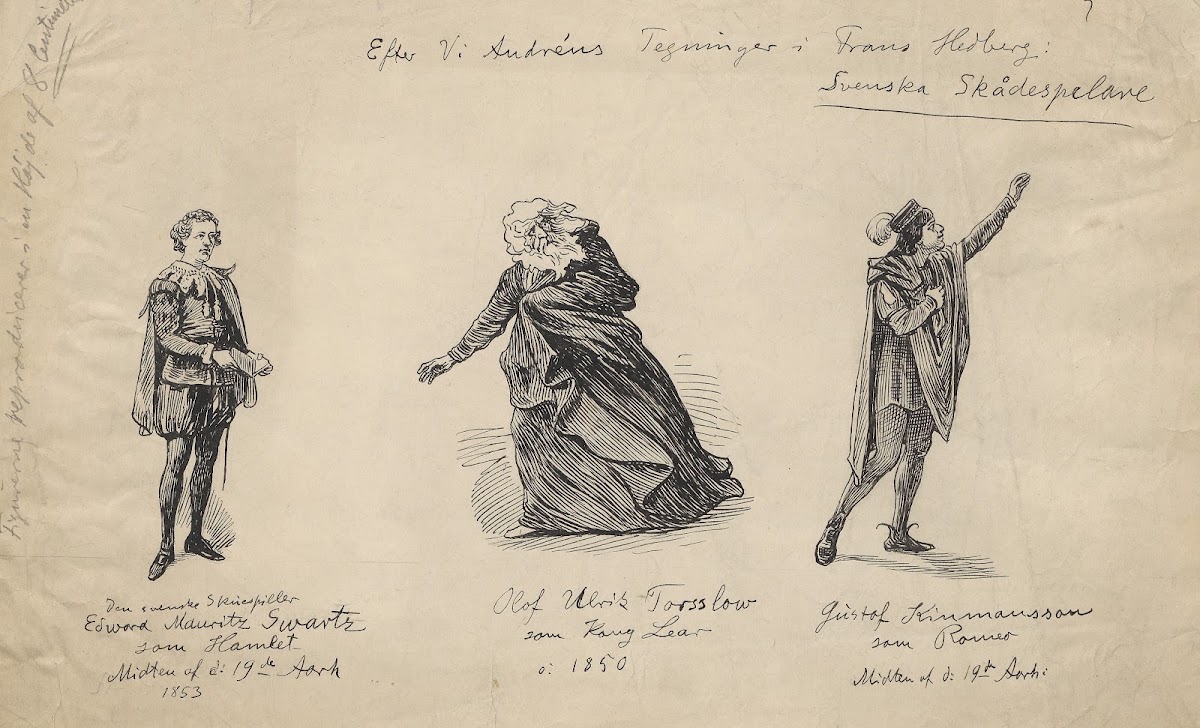 Efter Vi Andréns Tegninger i Frans Hedberg:
Svenska Skådespelare
Figurerne reproduceres i en Højde af 8 Centimeter
Den svenske Skuespiller
Edward Mauritz Swartz
som Hamlet
Midten af d: 19de Aarh
1853
Olof Ulrik Torsslow
som Kong Lear
o: 1850
Gustof Kinmansson
som Romeo
Midten af d: 19de Aarh: